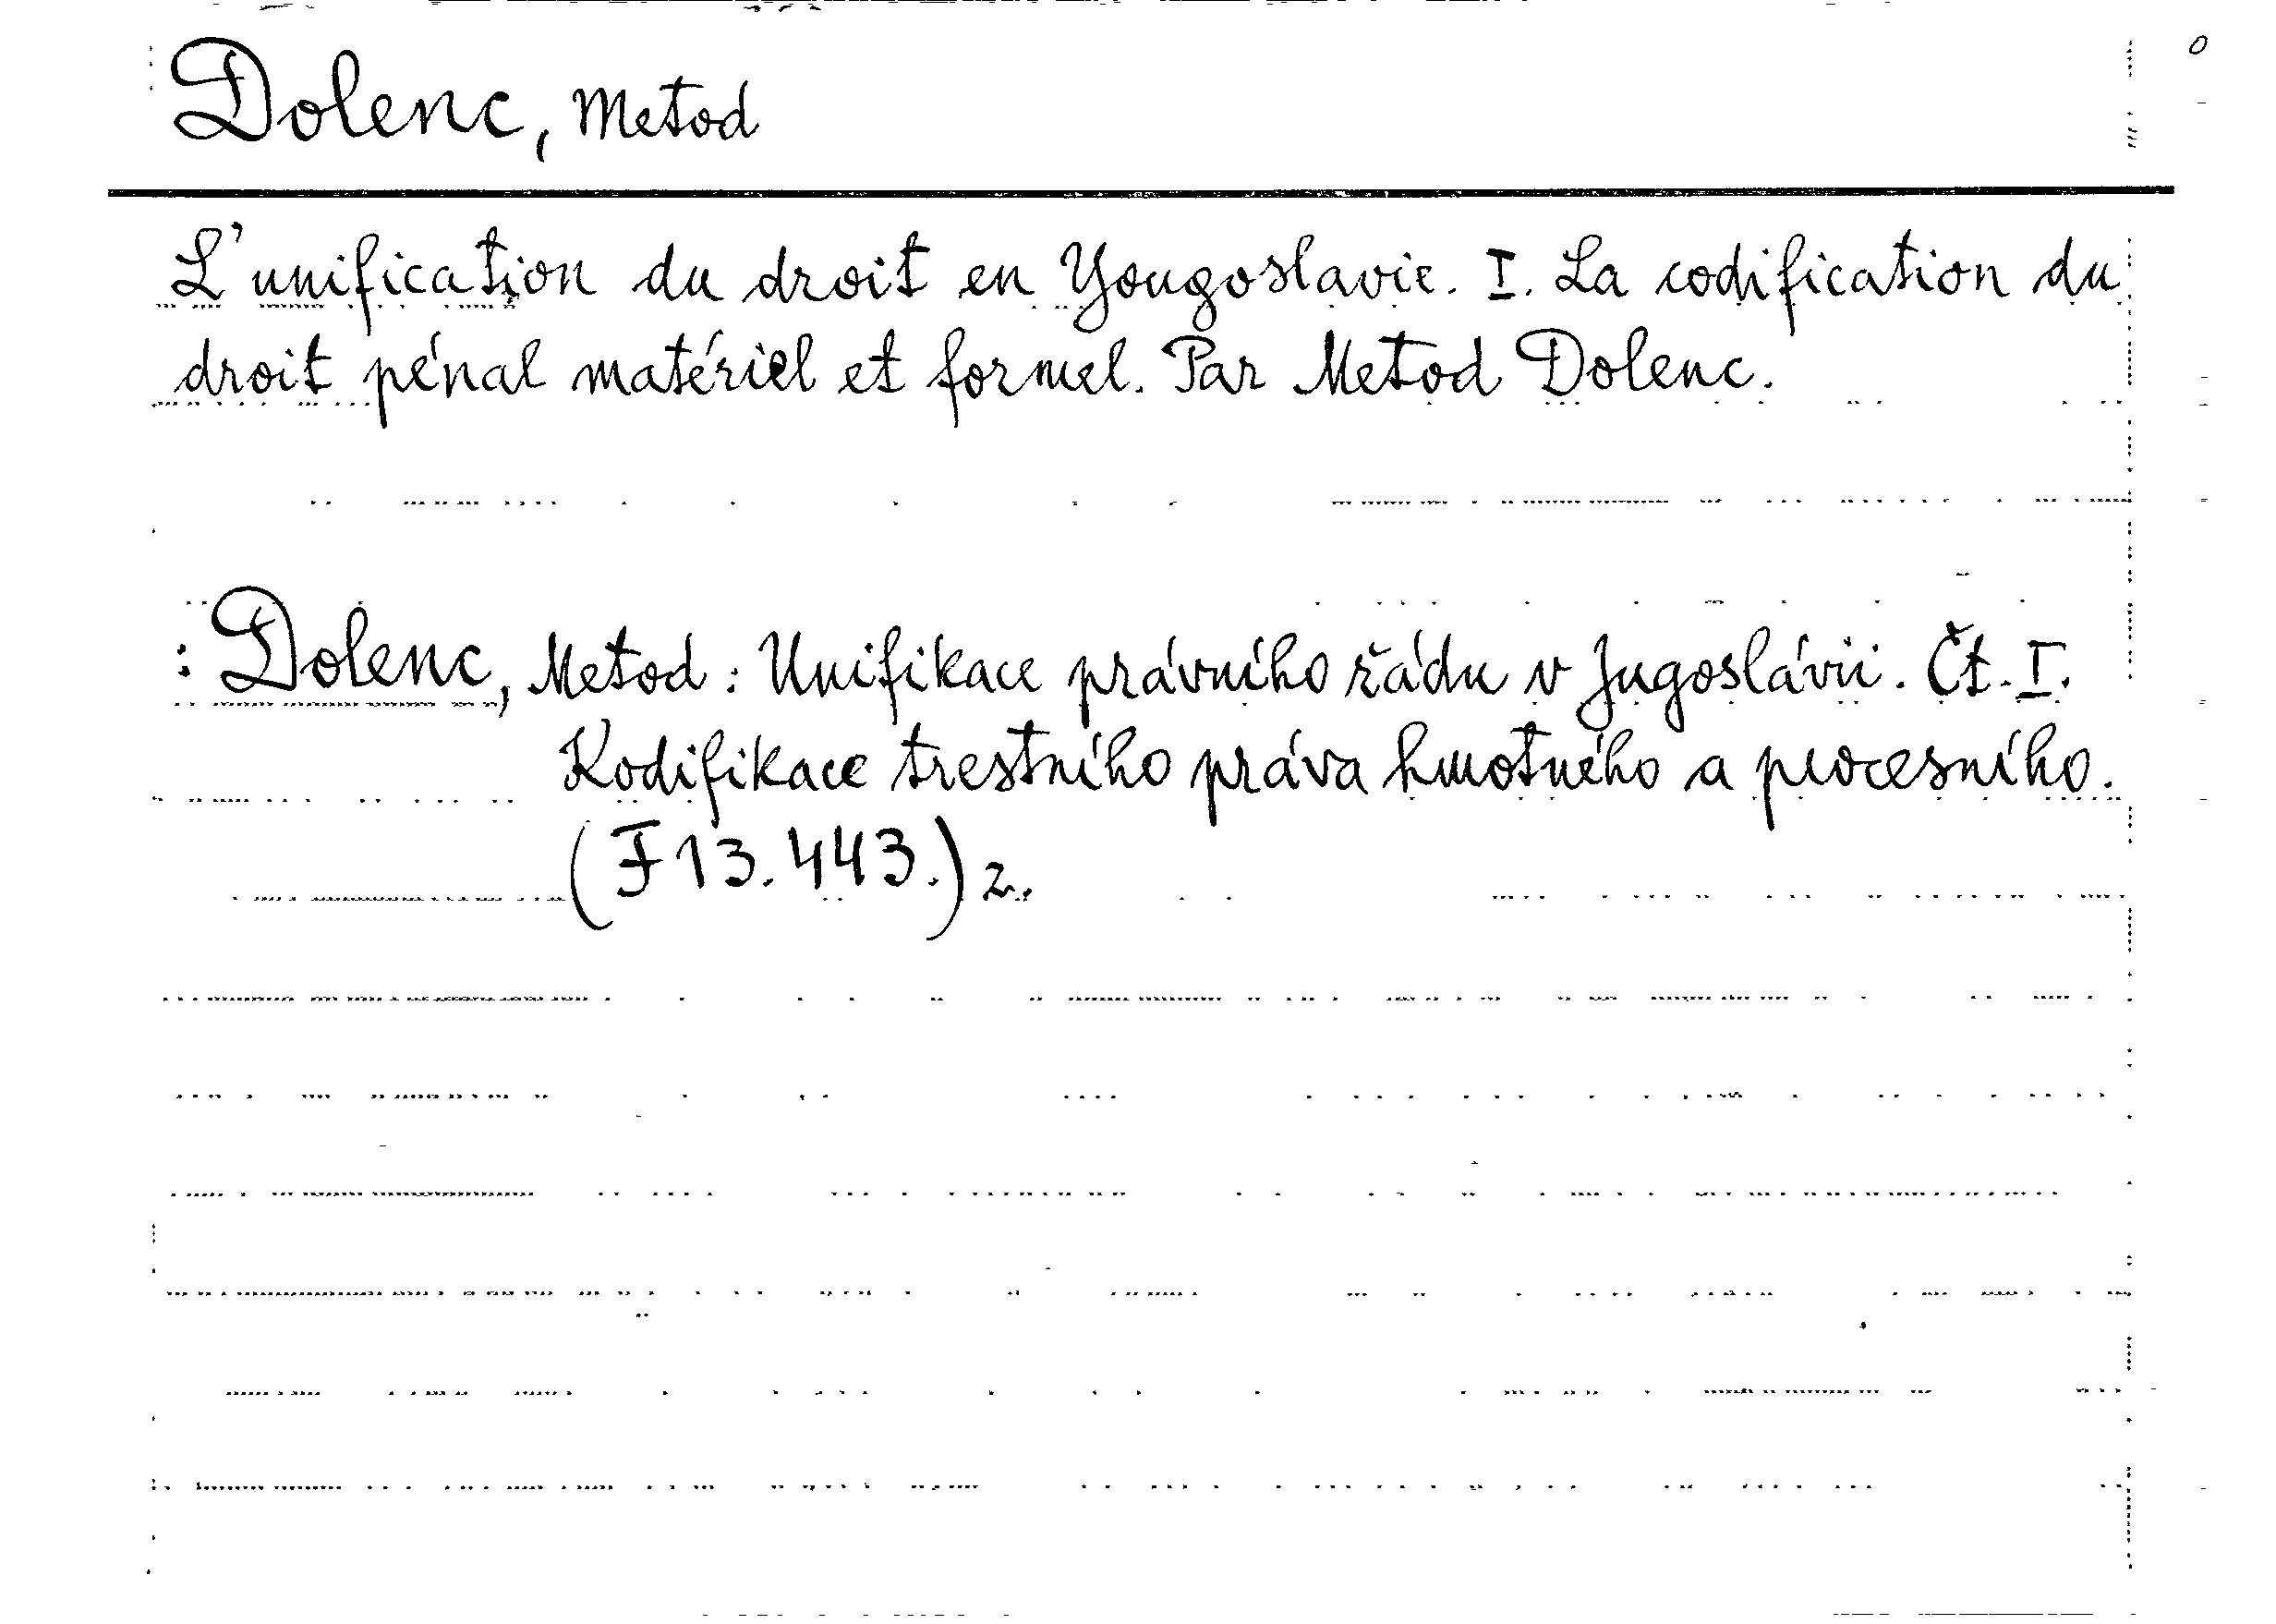 Dolenc, Metod
L'unification du droit en Yougoslavie. I. La codification du
droit pénal matériel et formel. Par Metod Dolenc.
: Dolenc, Metod : Unifikace právního řádu v Jugoslávii. Čt. I.
Kodifikace trestního práva hmotného a procesního.
(F 13.443.) 2.